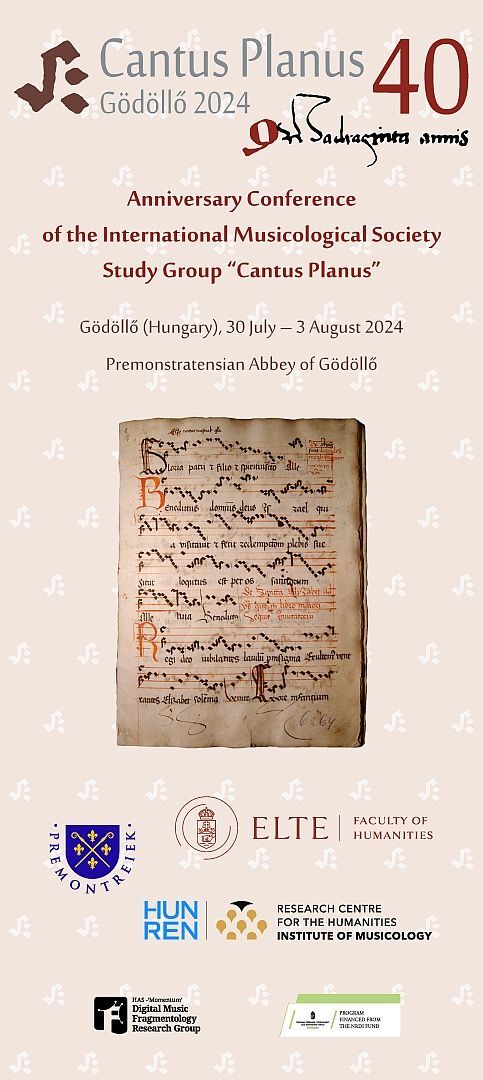 Cantus Planus 40
Gödöllő 2024
Quadraginta annis
Anniversary Conference
of the International Musicological Society
Study Group “Cantus Planus”
Gödöllő (Hungary), 30 July – 3 August 2024
Premonstratensian Abbey of Gödöllő
Gloria patri ⁊ filio ⁊ spiritusscto Alle
Benedictus dominus deus zrael qui
a visitauit ⁊ fecit redemptiom plebis sue
Sicut loqutus est per os sanctorum
Alle luia Benedictus
Regi deo iubilantes
rantes Elizabet
PREMONTREIEK
ELTE
FACULTY OF
HUMANITIES
HUN
REN
RESEARCH CENTRE
FOR THE HUMANITIES
INSTITUTE OF MUSICOLOGY
HAS -'Momentum'
Digital Music
Fragmentology
Research Group
PROGRAM
FINANCED FROM
THE NRDI FUND